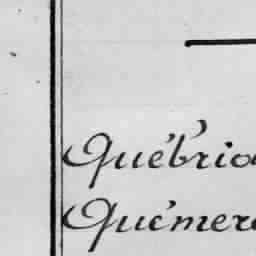 Québria
Quémere